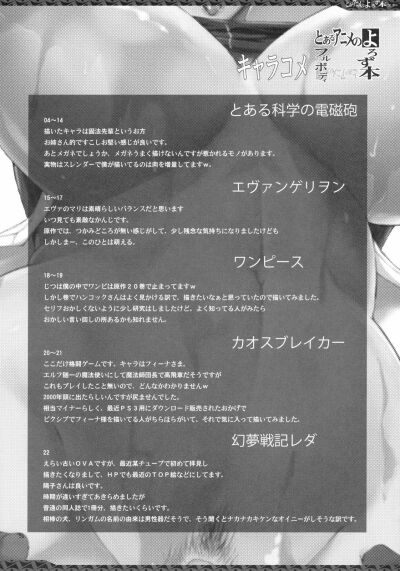 とあるアニメのよろず本
とあるアニメの
フルボディ
よろず本
キャラコメ
とある科学の電磁砲
04～14
描いたキャラは固法先輩というお方
お姉さん的ですこしお堅い感じが良いです。
あとメガネでしょうか、メガネうまく描けないんですが惹かれるモノがあります。
実物はスレンダーで僕が描いてるのは肉を増量してますｗ。
エヴァンゲリヲン
15～17
エヴァのマリは素晴らしいバランスだと思います
いつ見ても素敵なかんじです。
原作では、つかみどころが無い感じがして、少し残念な気持ちになりましたけども
しかしまー、このひとは萌える。
ワンピース
18～19
じつは僕の中でワンピは原作２０巻で止まってますｗ
しかし巷でハンコックさんはよく見かける訳で、描きたいなぁと思っていたので描いてみました。
セリフおかしくないように少し研究はしましたけど、よく知ってる人がみたら
おかしい言い回しの所あるかも知れません。
カオスブレイカー
20～21
ここだけ格闘ゲームです。キャラはフィーナさま。
エルフ随一の魔法使いにして魔法師団長で高飛車だそうですが
これもプレイしたこと無いので、どんなかわかりませんｗ
2000年頭に出たらしいんですが尻ませんでした。
相当マイナーらしく、最近ＰＳ３用にダウンロード販売されたおかげで
ピクシブでフィーナ様を描いてる人がちらほらがいて、それで気に入って描いてみました。
幻夢戦記レダ
22
えらい古いＯＶＡですが、最近某チューブで初めて拝見し
描きたくなりまして、ＨＰでも最近のＴＯＰ絵などにしてます。
陽子さんは良いです。
時期が違いすぎてあきらめましたが
普通の同人誌で１冊分、描きたいくらいです。
相棒の犬、リンガムの名前の由来は男性器だそうで、そう聞くとナカナカキケンなオイニーがしそうな訳です。